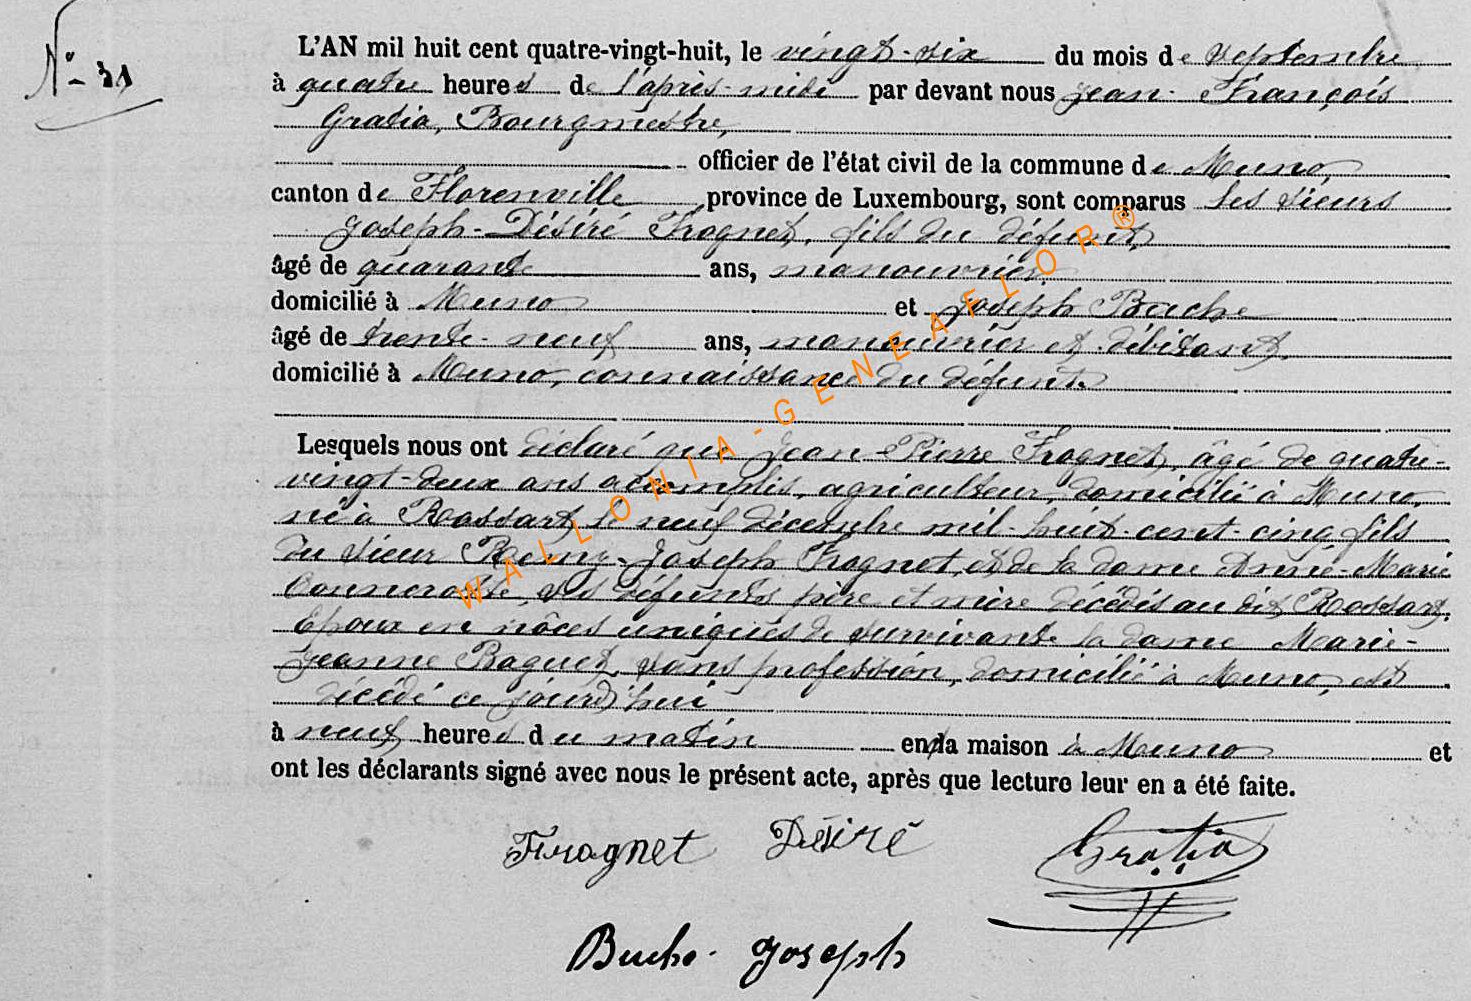 N° 31
L'AN mil huit cent quatre-vingt-huit, le vingt-six du mois de septembre
à quatre heures de l'après-midi par devant nous Jean François
Gratia, Bourgmestre,
officier de l'état civil de la commune de Muno,
canton de Florenville province de Luxembourg, sont comparus les sieurs
Joseph-Désiré Frognet, fils du défunt,
âgé de quarante ans, manouvrier,
domicilié à Muno et Joseph Buche
âgé de trente-neuf ans, manouvrier et débitant,
domicilié à Muno, connaissance du défunt.
Lesquels nous ont déclaré que Jean-Pierre Frognet, âgé de quatre-
vingt-deux ans accomplis, agriculteur, domicilié à Muno,
né à Rossart, le neuf décembre mil-huit-cent-cinq fils
du sieur Remy-Joseph Frognet, et de la dame Anne-Marie
ses défunts père et mère décédés au dit Rossart,
Epoux en nôces uniques de survivante la dame Marie-
Jeanne Raguet, sans profession, domicilié à Muno, est
décédé ce jourd'hui
à neuf heures du matin en la maison à Muno et
ont les déclarants signé avec nous le présent acte, après que lecture leur en a été faite.
Frognet Désiré Gratia
Buche Joseph
WALLONIA-GENEAELOR®